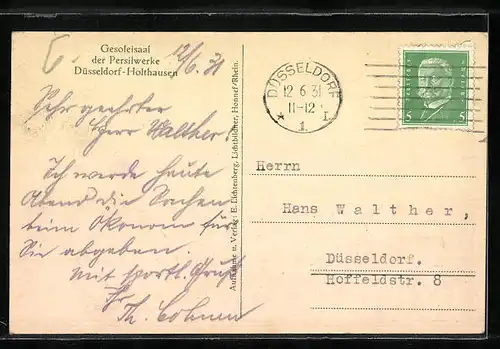 Gesoleisaal
der Persilwerke
Düsseldorf-Holthausen
12/6.31
Sehr geehrter
Herr Walther!
Ich werde heute
Abend die Sachen
beim Ökonom für
Sie abgeben.
Mit sportl. Gruß
Th. Cohnen
Aufnahme u. Verlag: E. Lichtenberg, Lichtbildner, Honnef/Rhein.
DÜSSELDORF
12 6 31
11-12
* 1. I.
5 5
Herrn
Hans Walther,
Düsseldorf.
Hoffeldstr. 8